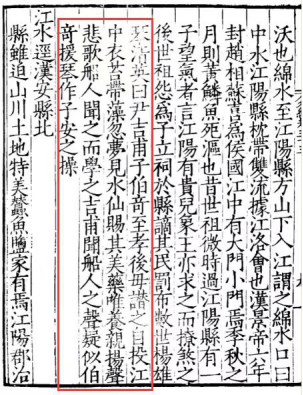 沃也綿水至江陽縣方山下入江謂之綿水口曰
中水江陽縣枕帶雙流據江洛會也漢景帝六年
封趙相蘇嘉為侯國江中有大門小門焉季秋之
月則黃魚死也昔世祖微時過江陽縣有一
子望氣者言江陽有貴兒象王亦求之而獠煞之
後世祖怨為子立祠於縣謫其民罰布數世楊雄
琴清英曰尹吉甫子伯奇至孝後母譖之自投江
中衣苔帶藻忽夢見水仙賜其美藥唯養親楊聲
悲歌船人聞之而學之吉甫聞船人之聲疑似伯
奇援琴作子安之操
江水逕漢安縣北
縣雖迫山川土地特美蠶魚鹽家有焉江陽郡治